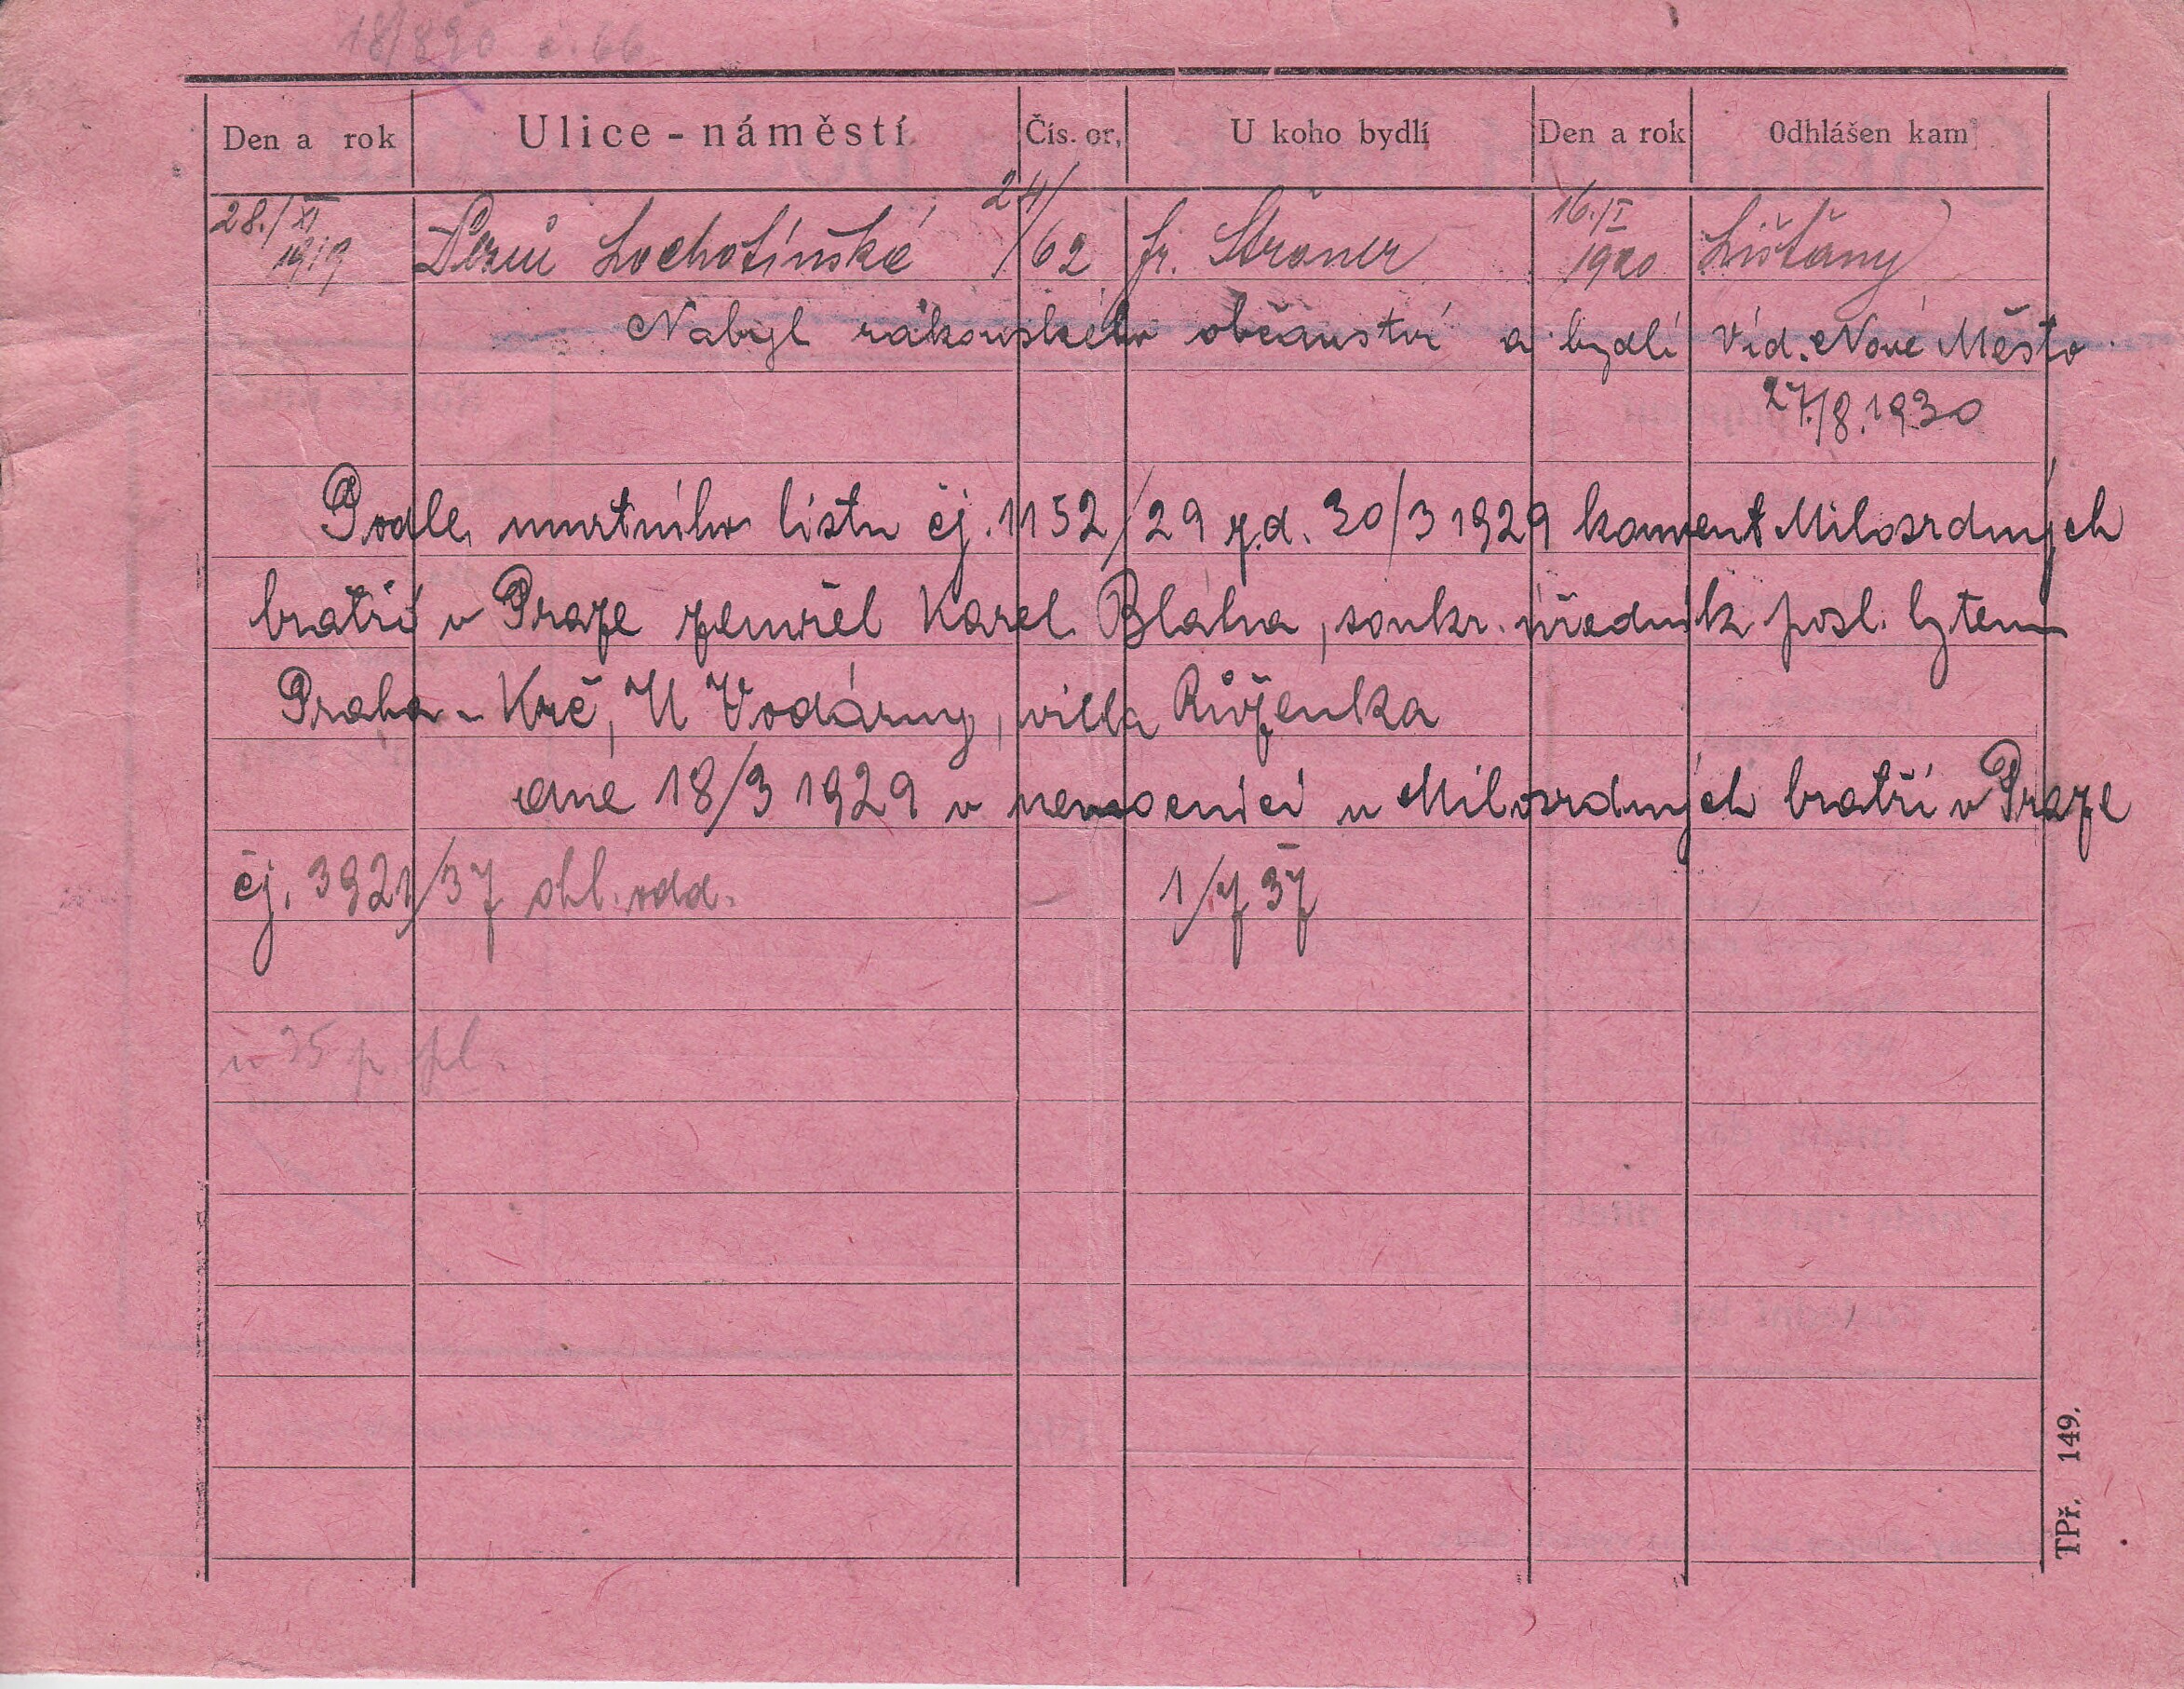 18/890 č. 66
Den a rok Ulice - náměstí Čís. or. U koho bydlí Den a rok Odhlášen kam
28./XI 24/ 16./I
1919 Lochotínská /62 fr. 1920 Lišťany
Nabyl rakouského občanství a bydlí Víd. Nové Město
27./8.1930
Podle umrtního listu čj. 1152/29 z.d. 30/3 1929 konvent Milosrdných
bratří v Praze zemřel Karel Blaha, soukr. úředník posl. bytem
Praha - Krč, U Vodárny, villa Růženka
dne 18/3 1929 v nemocnici u Milosrdných bratří v Praze
čj. 3921/37 ohl. odd. 1/7 37
v 35 p. pl.
TPř. 149.